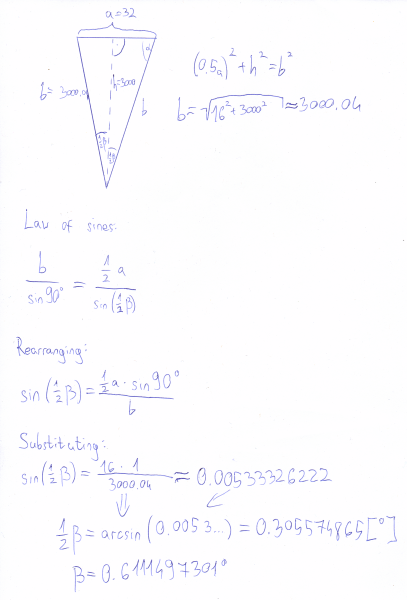 a=32
α
h=3000
b= 3000.04
b
½β
½β
(0.5a)² + h² = b²
b = √16² + 3000² ≈ 3000.04
Law of sines:
b / sin 90° = ½ a / sin(½β)
Rearranging:
sin(½β) = ½a · sin 90° / b
Substitating:
sin(½β) = 16 · 1 / 3000.04 ≈ 0.00533326222
½β = arcsin(0.0053...) = 0.305574865[°]
β = 0.6111497301°